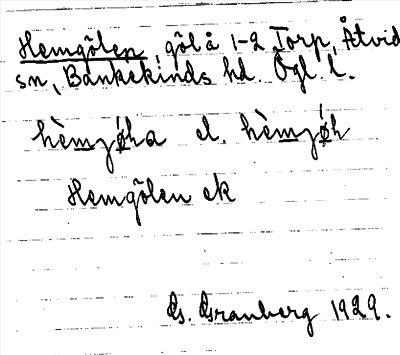 Hemgölen, göl å 1-2 Torp, Åtvid
sn, Bankekinds hd. Ögl. l.
hèmjøɦa el. hèmjøɦ
Hemgölen ek
Gs. Granberg 1929.